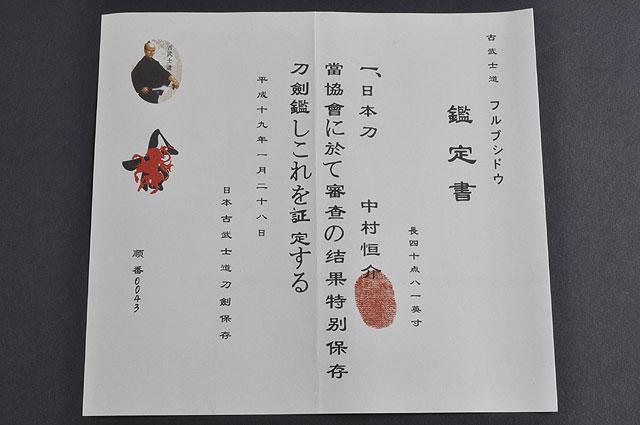 古武士道 フルブシドウ
鑑定書
長四十点八一英寸
一、日本刀 中村恒介
當協會に於て審查の结果特别保存
刀劍鑑しこれを証定する
平成十九年一月二十八日
日本古武士道刀劍保存
古武士道
順番0043